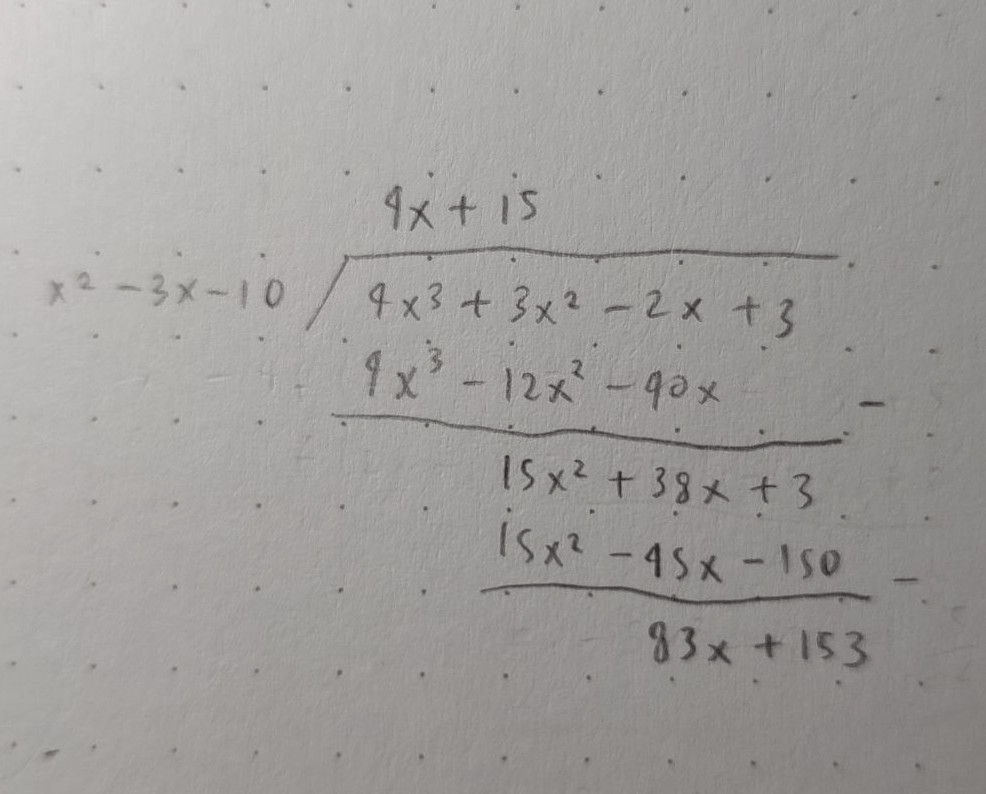 4x + 15
x² - 3x - 10 / 4x³ + 3x² - 2x + 3
4x³ - 12x² - 40x -
15x² + 38x + 3
15x² - 45x - 150 -
83x + 153